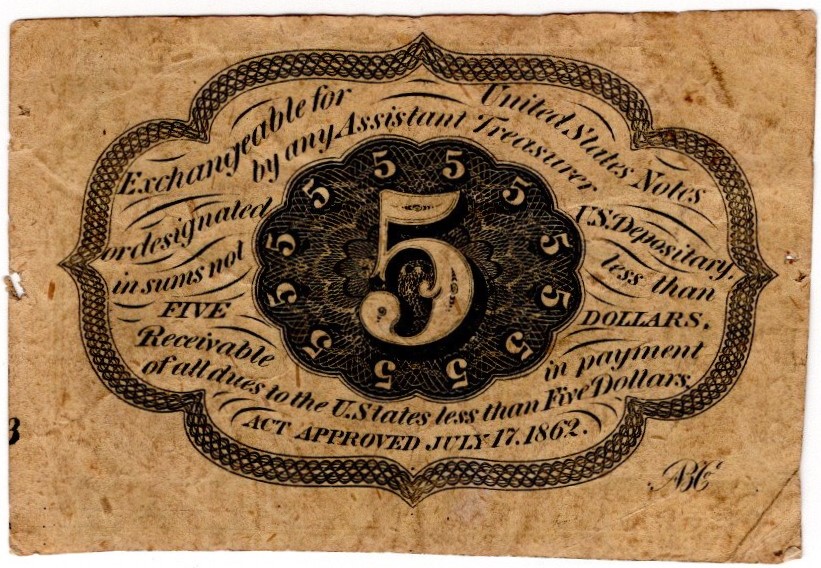 Exchangeable for United States Notes
by any Assistant Treasurer
or designated U.S. Depositary,
in sums not less than
FIVE DOLLARS.
Receivable in payment
of all dues to the U. States less than Five Dollars.
ACT APPROVED JULY 17, 1862.
5
5 5 5 5 5 5 5 5 5 5 5 5
ABCo